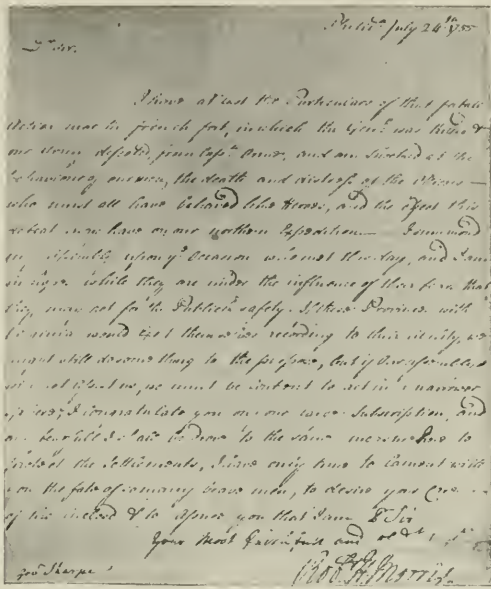 Philid.ª July 24th 1755
Dr Sir.
I have at last the Particulars of that fatale
Action near the french fort, in which the Genl. was killd &
our defeated, from Capt. Orme, and am Shocked at the
behaviour of our men, the death and distress of the officers
who must all have behaved like Heroes, and the effect this
defeat may have on our northern Expedition. I summond
my upon ye. Occasion who met this day, and I am
in hopes while they are under the influence of their fears that
they may act for the Publick safety. If these Provinces with
Virginia would exert themselves according to their ability, we
might still do something to the purpose, but if our assemblys
will not assist us, we must be content to act in a narrower
sphere; I congratulate you on your Subscription, and
to the same to
protect the Settlements, I have only time to lament with
you the fate of so many brave men, to desire you
& to assure you that I am Dr Sir
Your Most Faithfull and
Rob. H. Morris
Govr Sharpe